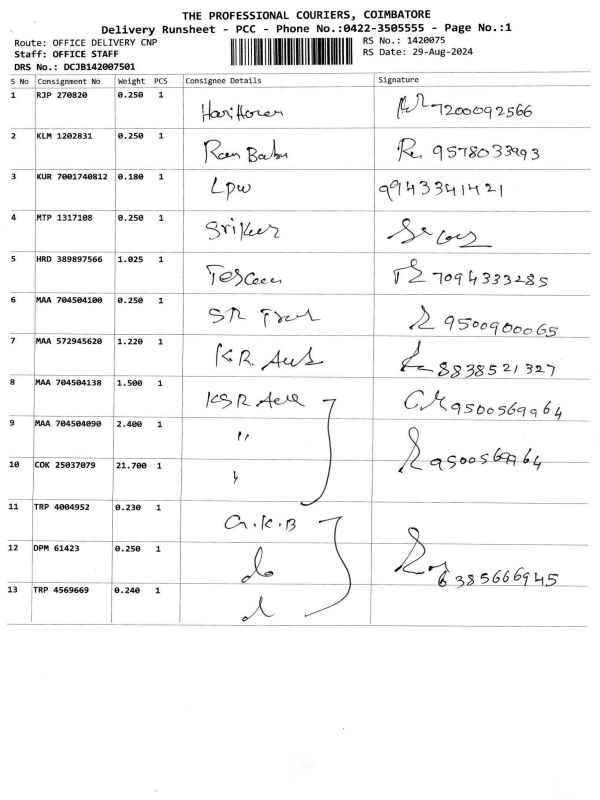 THE PROFESSIONAL COURIERS, COIMBATORE
Delivery Runsheet - PCC - Phone No.:0422-3505555 - Page No.:1
Route: OFFICE DELIVERY CNP RS No.: 1420075
Staff: OFFICE STAFF RS Date: 29-Aug-2024
DRS No.: DCJB142007501
S No Consignment No Weight PCS Consignee Details Signature
1 RJP 270820 0.250 1 7200092566
2 KLM 1202831 0.250 1 Ram Babu 9578033993
3 KUR 7001740812 0.180 1 Lpw 9943341421
4 MTP 1317108 0.250 1
5 HRD 389897566 1.025 1 7094333285
6 MAA 704504100 0.250 1 SR 9500900065
7 MAA 572945620 1.220 1 K.R. 8838521327
8 MAA 704504138 1.500 1 KSR 9500569964
9 MAA 704504090 2.400 1 "
9500569964
10 COK 25037079 21.700 1 "
11 TRP 4004952 0.230 1 G.K.B
12 DPM 61423 0.250 1 do
6385666945
13 TRP 4569669 0.240 1